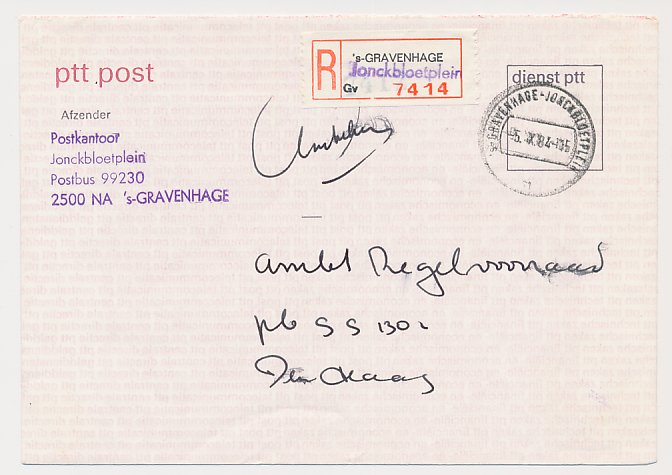 ptt post
R
's-GRAVENHAGE
Jonckbloetplein
Gv 7414
dienst ptt
's-GRAVENHAGE-JONCKBLOETPLEIN
Afzender
Postkantoor
Jonckbloetplein
Postbus 99230
2500 NA 's-GRAVENHAGE
Ambt Regelvoorraad
pb 5 5 1302
Den Haag